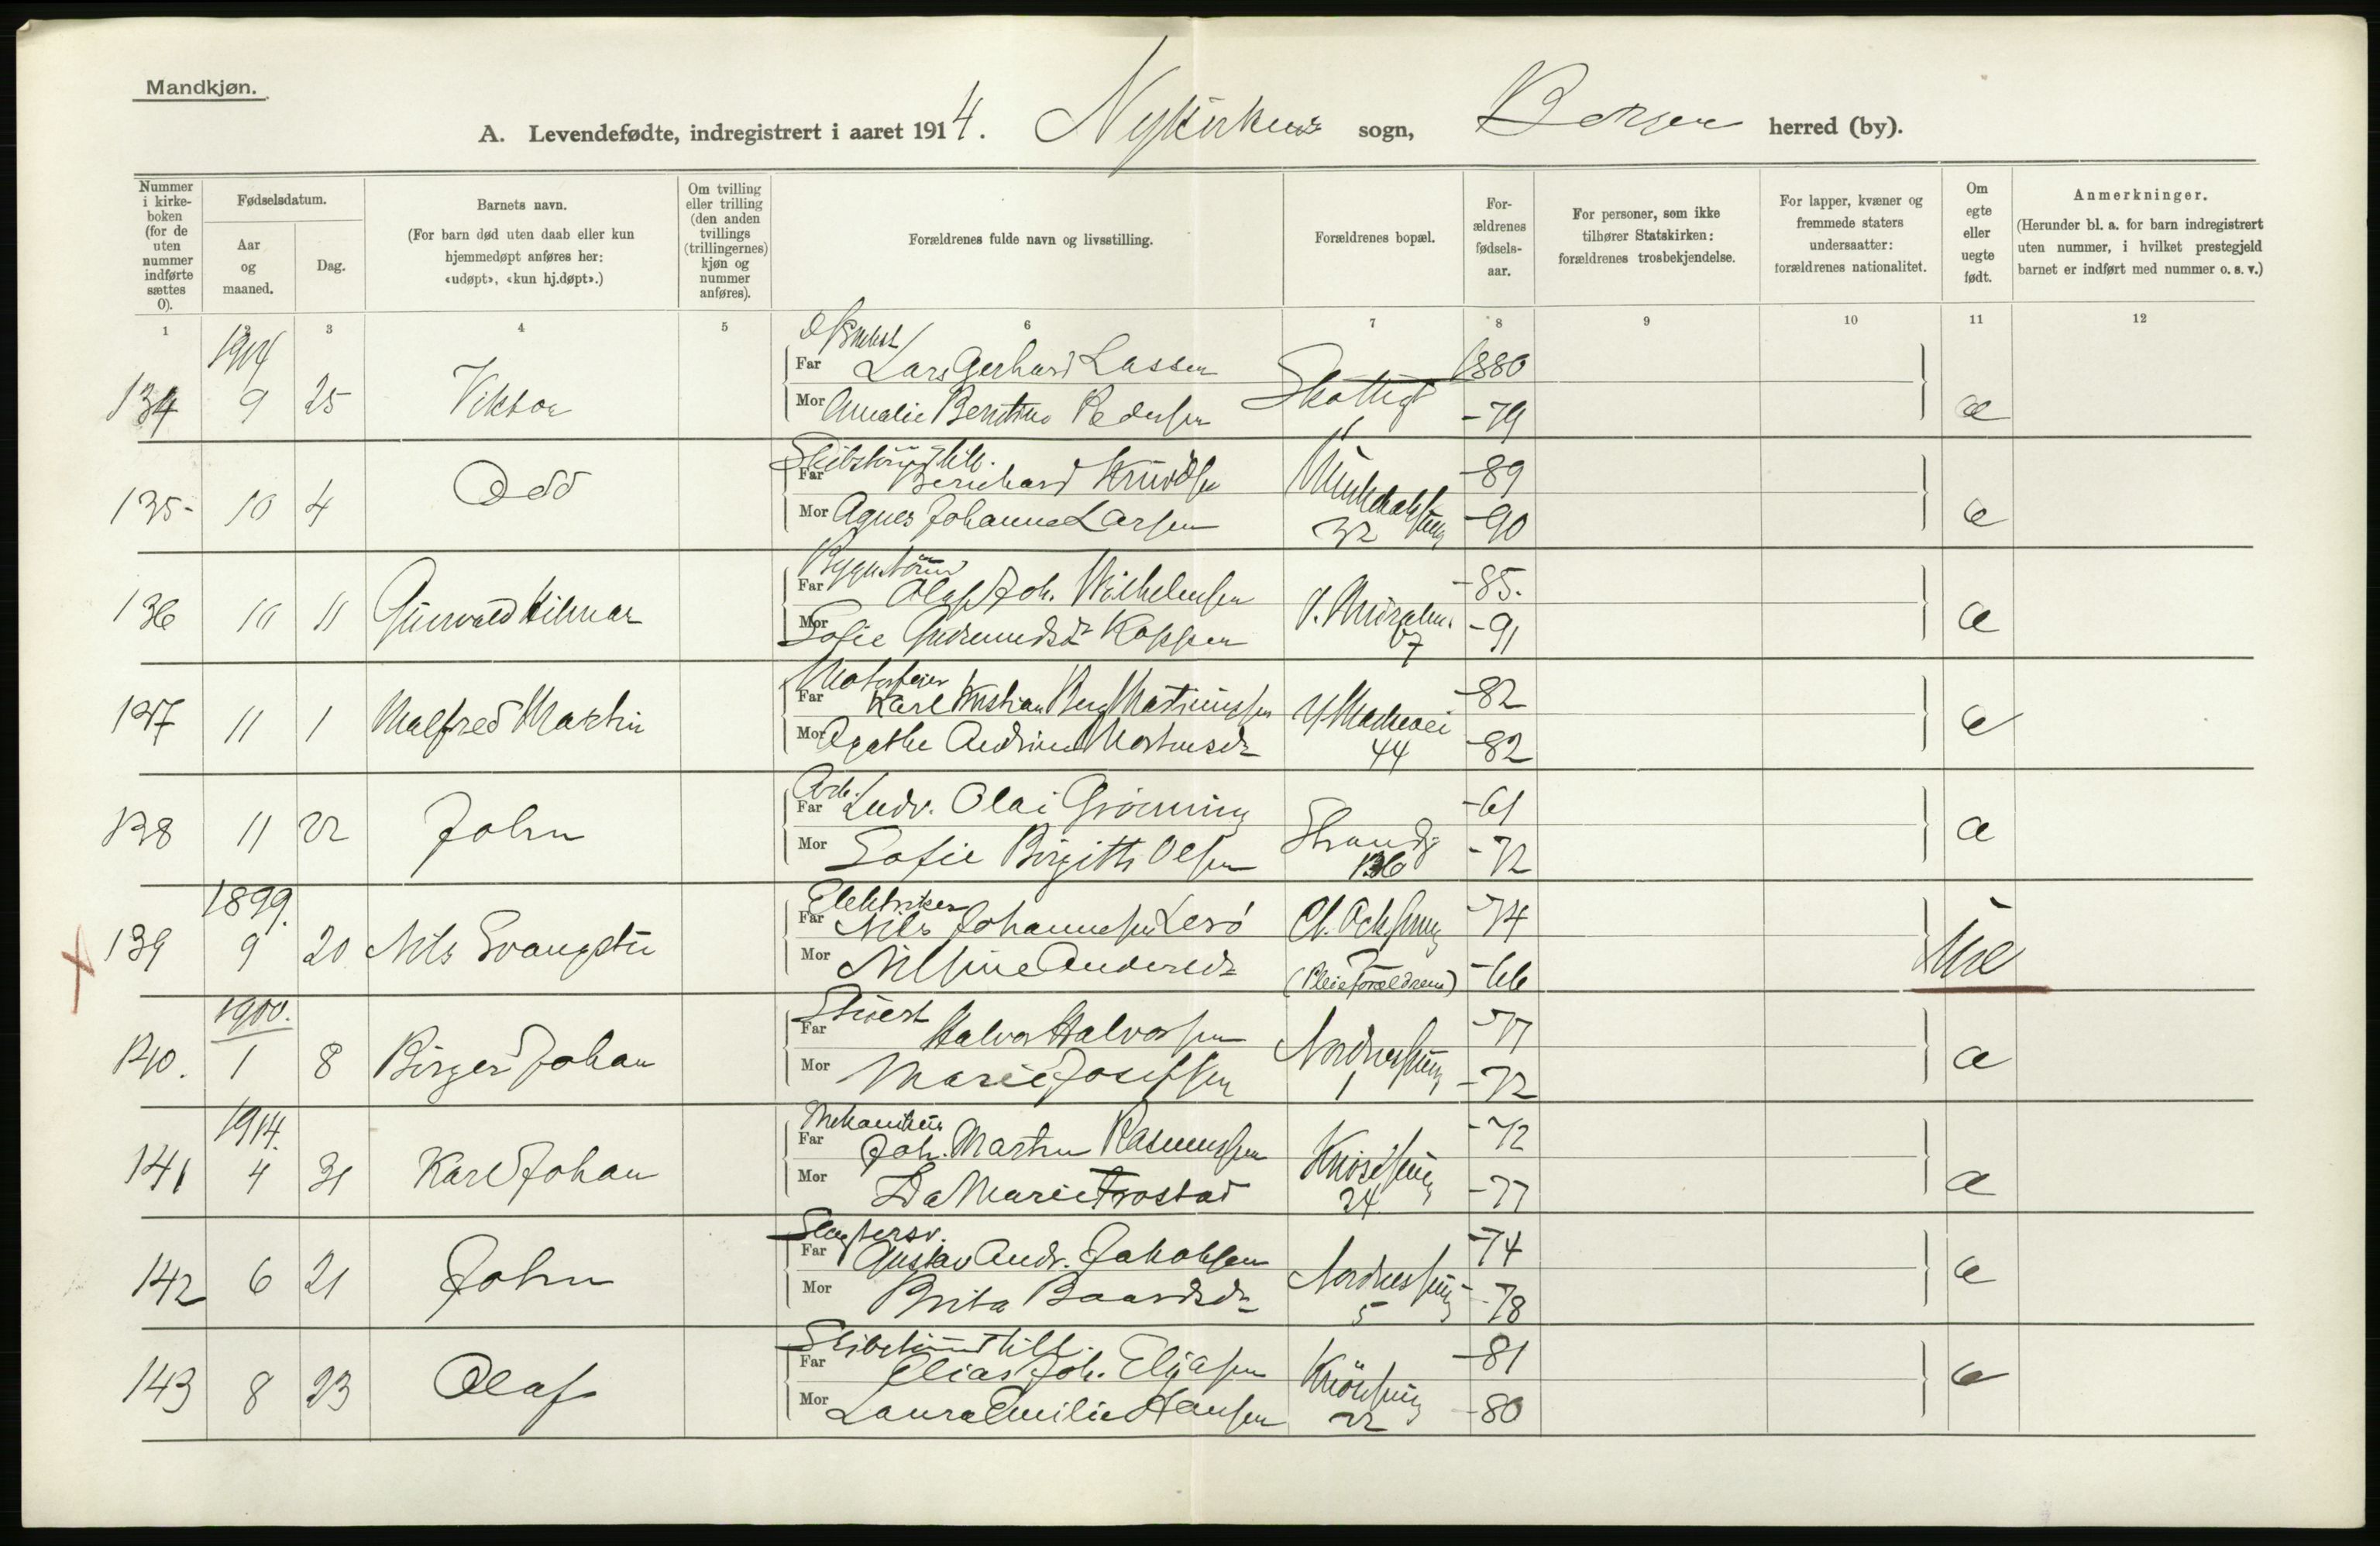 Mandkjøn.
A. Levendefødte, indregistrert i aaret 1914. Nykirkens sogn, Bergen herred (by).
Nummer i kirke-boken (for de uten nummer indførte sættes 0).
Fødselsdatum.
Aar og maaned.
Dag.
Barnets navn.
(For barn død uten daab eller kun hjemmedøpt anføres her: «udøpt», «kun hj.døpt».)
Om tvilling eller trilling (den anden tvillings (trillingernes) kjøn og nummer anføres).
Forældrenes fulde navn og livsstilling.
Forældrenes bopæl.
For-ældrenes fødsels-aar.
For personer, som ikke tilhører Statskirken: forældrenes trosbekjendelse.
For lapper, kvæner og fremmede staters undersaatter: forældrenes nationalitet.
Om egte eller uegte født.
Anmerkninger.
(Herunder bl. a. for barn indregistrert uten nummer, i hvilket prestegjeld barnet er indført med nummer o. s. v.)
1 3 4 5 6 7 8 9 10 11 12
1914
Far Lars Gerhard Lassen 1880
134 9 25 Viktor Mor Amalie Bentine Pedersen -79 æ
Skibstømt till.
Far Bernhard Knudsen -89
135- 10 4 Odd Mor Agnes Johanne Larsen 32 -90 æ
Far Olaf Joh. Wilhelmsen -85.
136 10 11 Gunvald Hilmar Mor Sofie 17 -91 æ
Far Karl Kristian Berg Martinussen -82
137 11 1 Malfred Martin Mor Agathe Andrine 44 -82 æ
Arb.
Far Ludv. Olai Grønning -61
138 11 22 John Mor Sofie Birgitte Olsen Strandg 136 -72 æ
1899.
Elektriker
Far Nils Johannesen Lerö -74
139 9 20 Nils Mor Nilsine Andersdr (Pleieforældrene) -66 Uæ
1900.
Stuert
Far Halvor Halvorsen -77
140. 1 8 Birger Johan Mor Marie Josefsen Nordnessmug 1 -72 æ
1914.
Mekaniker
Far Joh. Martin Rasmussen -72
141 4 31 Karl Johan Mor Ida Marie Frostad 24 -77 æ
Slagtersv.
Far Gustav Andr. Jakobsen -74
142 6 21 John Mor Brita Baardsdr Nordnessmug 5 -78 æ
Skibstømt till.
Far Elias Joh. Eliasen -81
143 8 23 Olaf Mor Laura Emilie Hansen 22 -80 æ